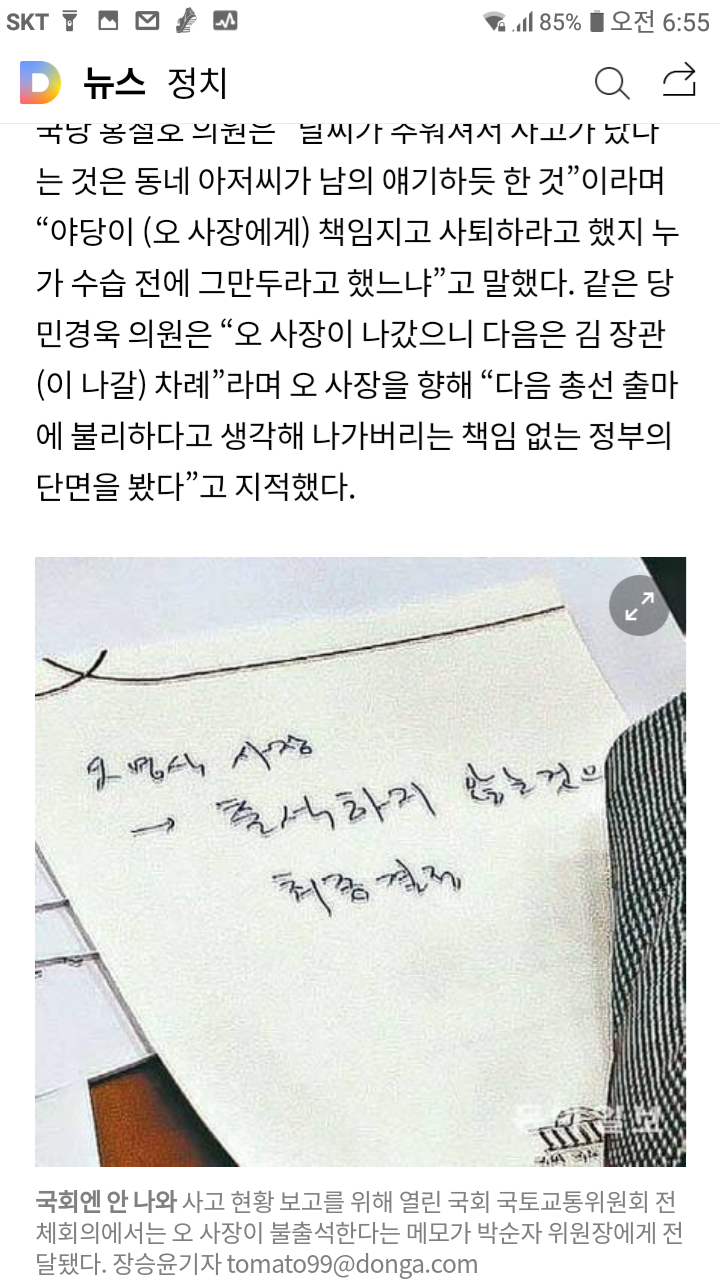 SKT 85% 오전 6:55
뉴스 정치
국당 홍철호 의원은 “날씨가 추워져서 사고가 났다
는 것은 동네 아저씨가 남의 얘기하듯 한 것”이라며
“야당이 (오 사장에게) 책임지고 사퇴하라고 했지 누
가 수습 전에 그만두라고 했느냐”고 말했다. 같은 당
민경욱 의원은 “오 사장이 나갔으니 다음은 김 장관
(이 나갈) 차례”라며 오 사장을 향해 “다음 총선 출마
에 불리하다고 생각해 나가버리는 책임 없는 정부의
단면을 봤다”고 지적했다.
오영식 사장
→ 출석하지 않는것으
최종결정
동아일보
국회엔 안 나와 사고 현황 보고를 위해 열린 국회 국토교통위원회 전
체회의에서는 오 사장이 불출석한다는 메모가 박순자 위원장에게 전
달됐다. 장승윤기자 tomato99@donga.com